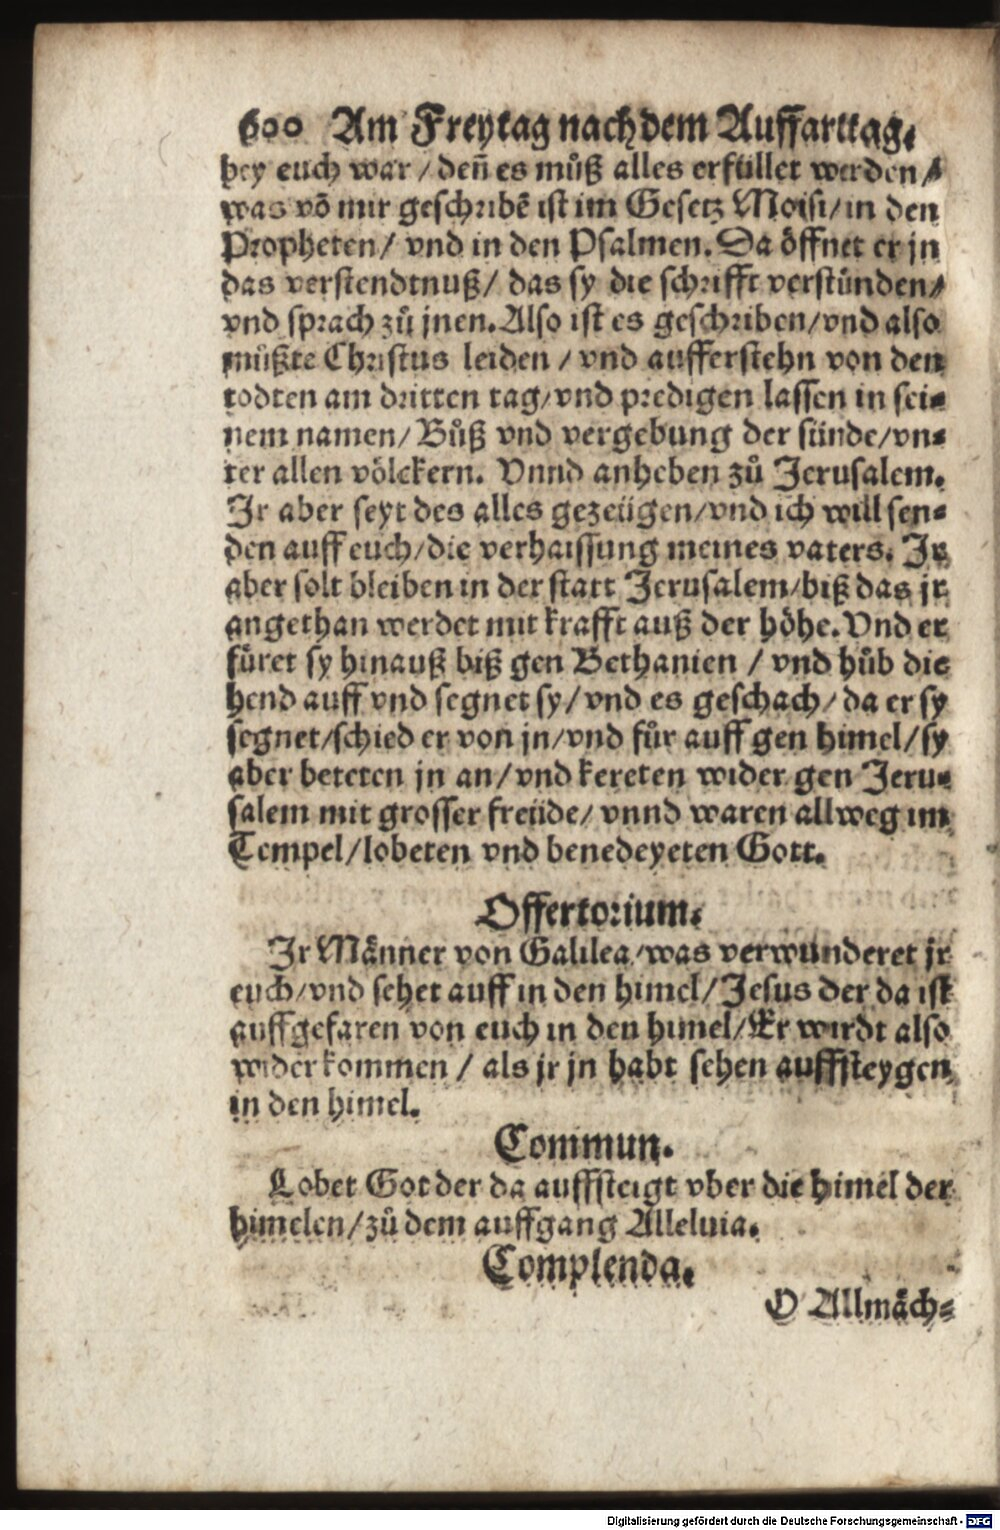 600 Am Freytag nach dem Auffarttag.
bey euch war / deñ es můß alles erfüllet werden /
was võ mir geschribẽ ist im Gesetz Moisi / in den
Propheten / vnd in den Psalmen. Da öffnet er jn
das verstendtnuß / das sy die schrifft verstünden /
vnd sprach zů jnen. Also ist es geschriben / vnd also
můßte Christus leiden / vnd aufferstehn von den
todten am dritten tag / vnd predigen lassen in sei=
nem namen / Bůß vnd vergebung der sünde / vn=
ter allen völckern. Vnnd anheben zů Jerusalem.
Jr aber seyt des alles gezeügen / vnd ich will sen=
den auff euch / die verhaissung meines vaters. Jr
aber solt bleiben in der statt Jerusalem / biß das jr
angethan werdet mit krafft auß der höhe. Vnd er
füret sy hinauß biß gen Bethanien / vnd hůb die
hend auff vnd segnet sy / vnd es geschach / da er sy
segnet / schied er von jn / vnd fůr auff gen himel / sy
aber beteten jn an / vnd kereten wider gen Jeru=
salem mit grosser freüde / vnnd waren allweg im
Tempel / lobeten vnd benedeyeten Gott.
Offertorium.
Jr Männer von Galilea / was verwunderet jr
euch / vnd sehet auff in den himel / Jesus der da ist
auffgefaren von euch in den himel / Er wirdt also
wider kommen / als jr jn habt sehen auffsteygen
in den himel.
Commun.
Lobet Got der da auffsteigt vber die himel der
himelen / zů dem auffgang Alleluia.
Complenda.
O Allmäch=
Digitalisierung gefördert durch die Deutsche Forschungsgemeinschaft - DFG